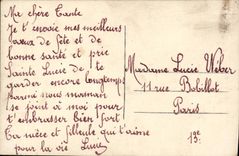 Ma chère Tante
Je t'envoie mes meilleurs
vœux de fête et de
bonne santé et prie
Sainte Lucie de te
garder encore longtemps
parmi nous maman
se joint à moi pour
t'embrasser bien fort
Ta nièce et filleule qui t'aime
pour la vie Lucie
Madame Lucie Weber
11 rue Bobillot
Paris
13e